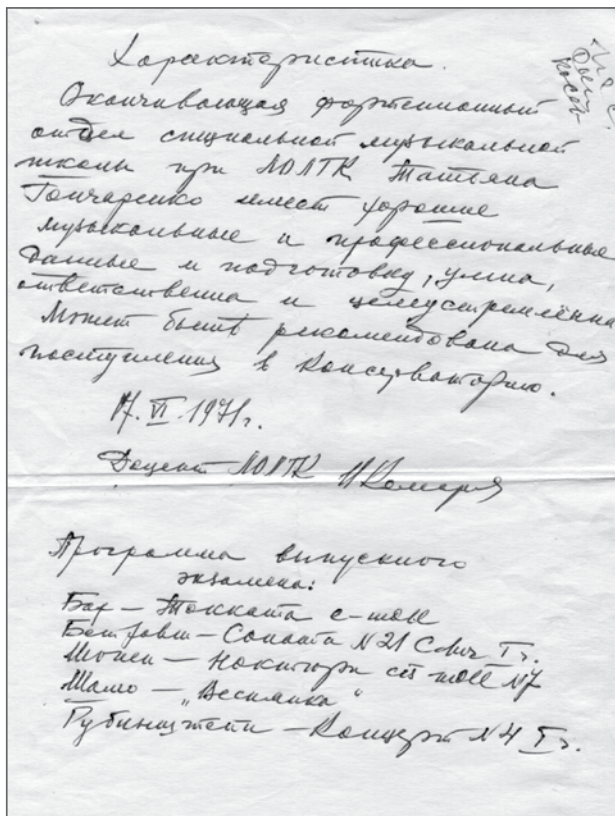 Характеристика.
Оканчивающая фортепианный
отдел специальной музыкальной
школы при ЛОЛГК Татьяна
Гончаренко имеет хорошие
музыкальные и профессиональные
данные и подготовку, умна,
ответственна и целеустремлённа
Может быть рекомендована для
поступления в Консерваторию.
17.VI.1971г.
Доцент ЛОЛГК
Программа выпускного
экзамена:
Бах – Токката e-moll
Бетховен – Соната N 21 C-dur I ч.
Шопен – Ноктюрн cis-moll N7
Мамо – „Веснянка“
Рубинштейн – Концерт N 4 I ч.